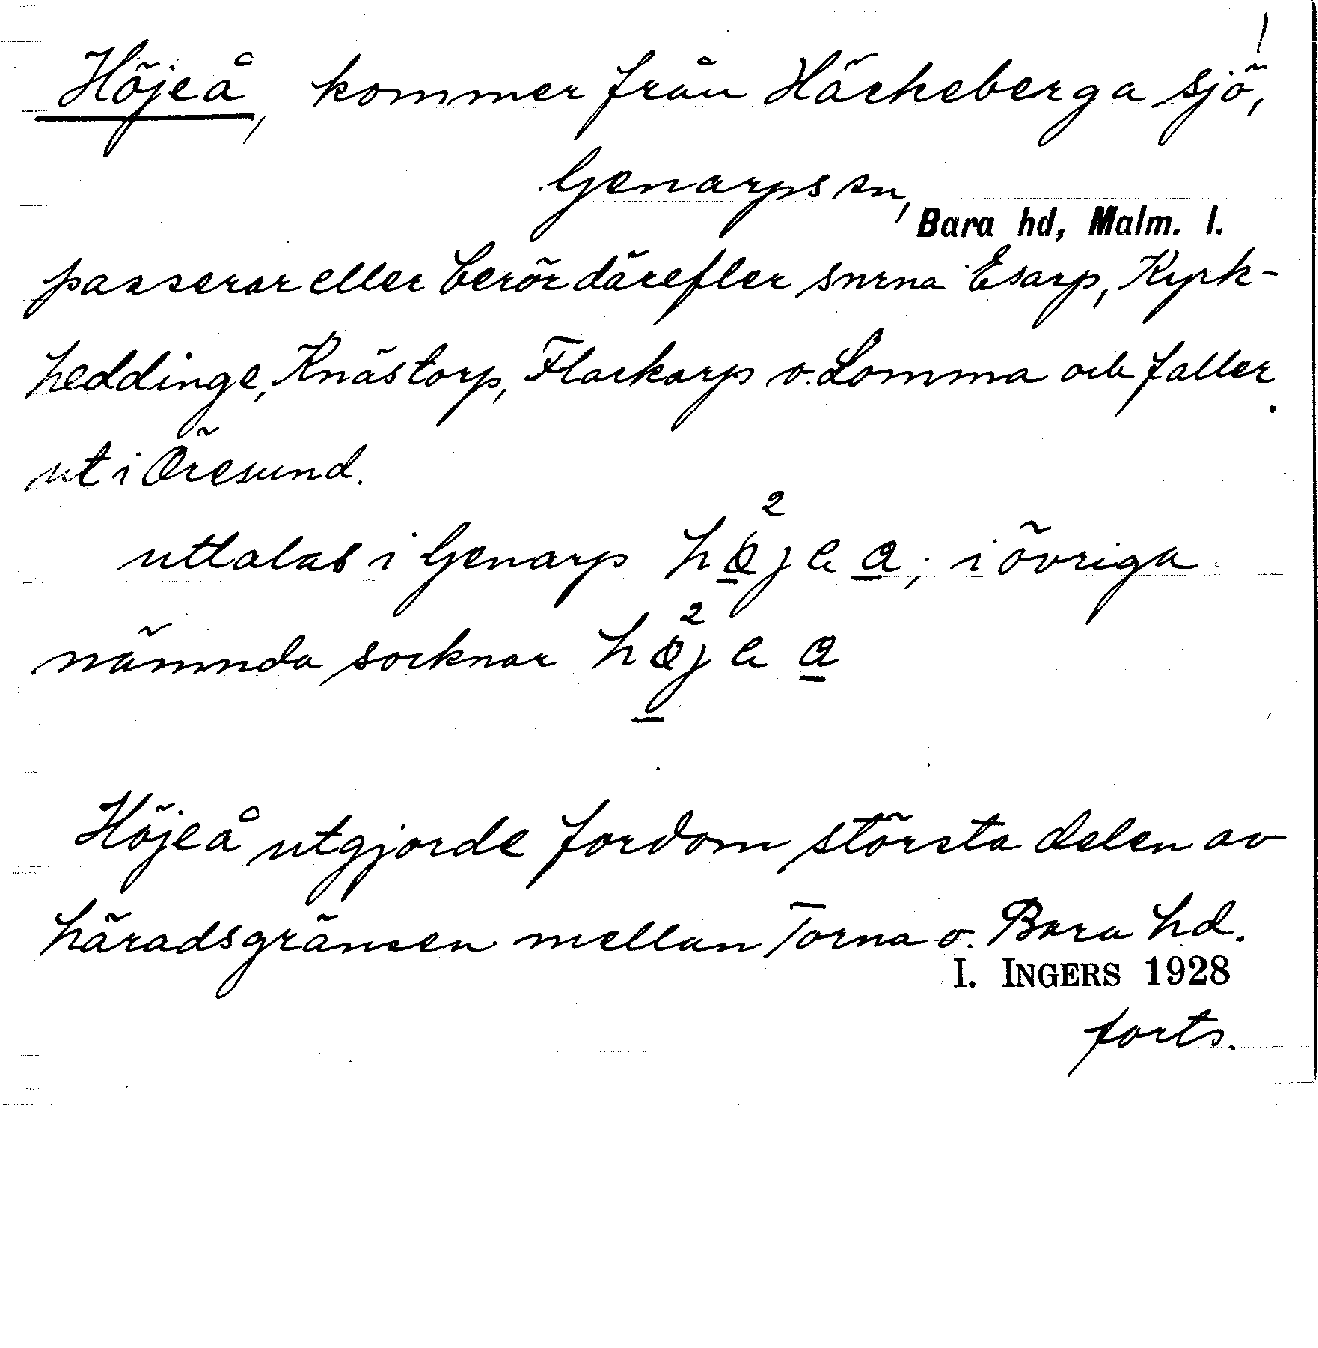 Höjeå, kommer från Häckeberga sjö,
Genarps sn,
Bara hd, Malm. l.
passerar eller berör därefter snrna Esarp, Kyrk-
heddinge, Knästorp, Flackarp o. Lomma och faller
ut i Öresund.
uttalas i Genarp ; i övriga
nämnda socknar
Höjeå utgjorde fordom största delen av
häradsgränsen mellan Torna o. Bara hd.
I. INGERS 1928
forts.